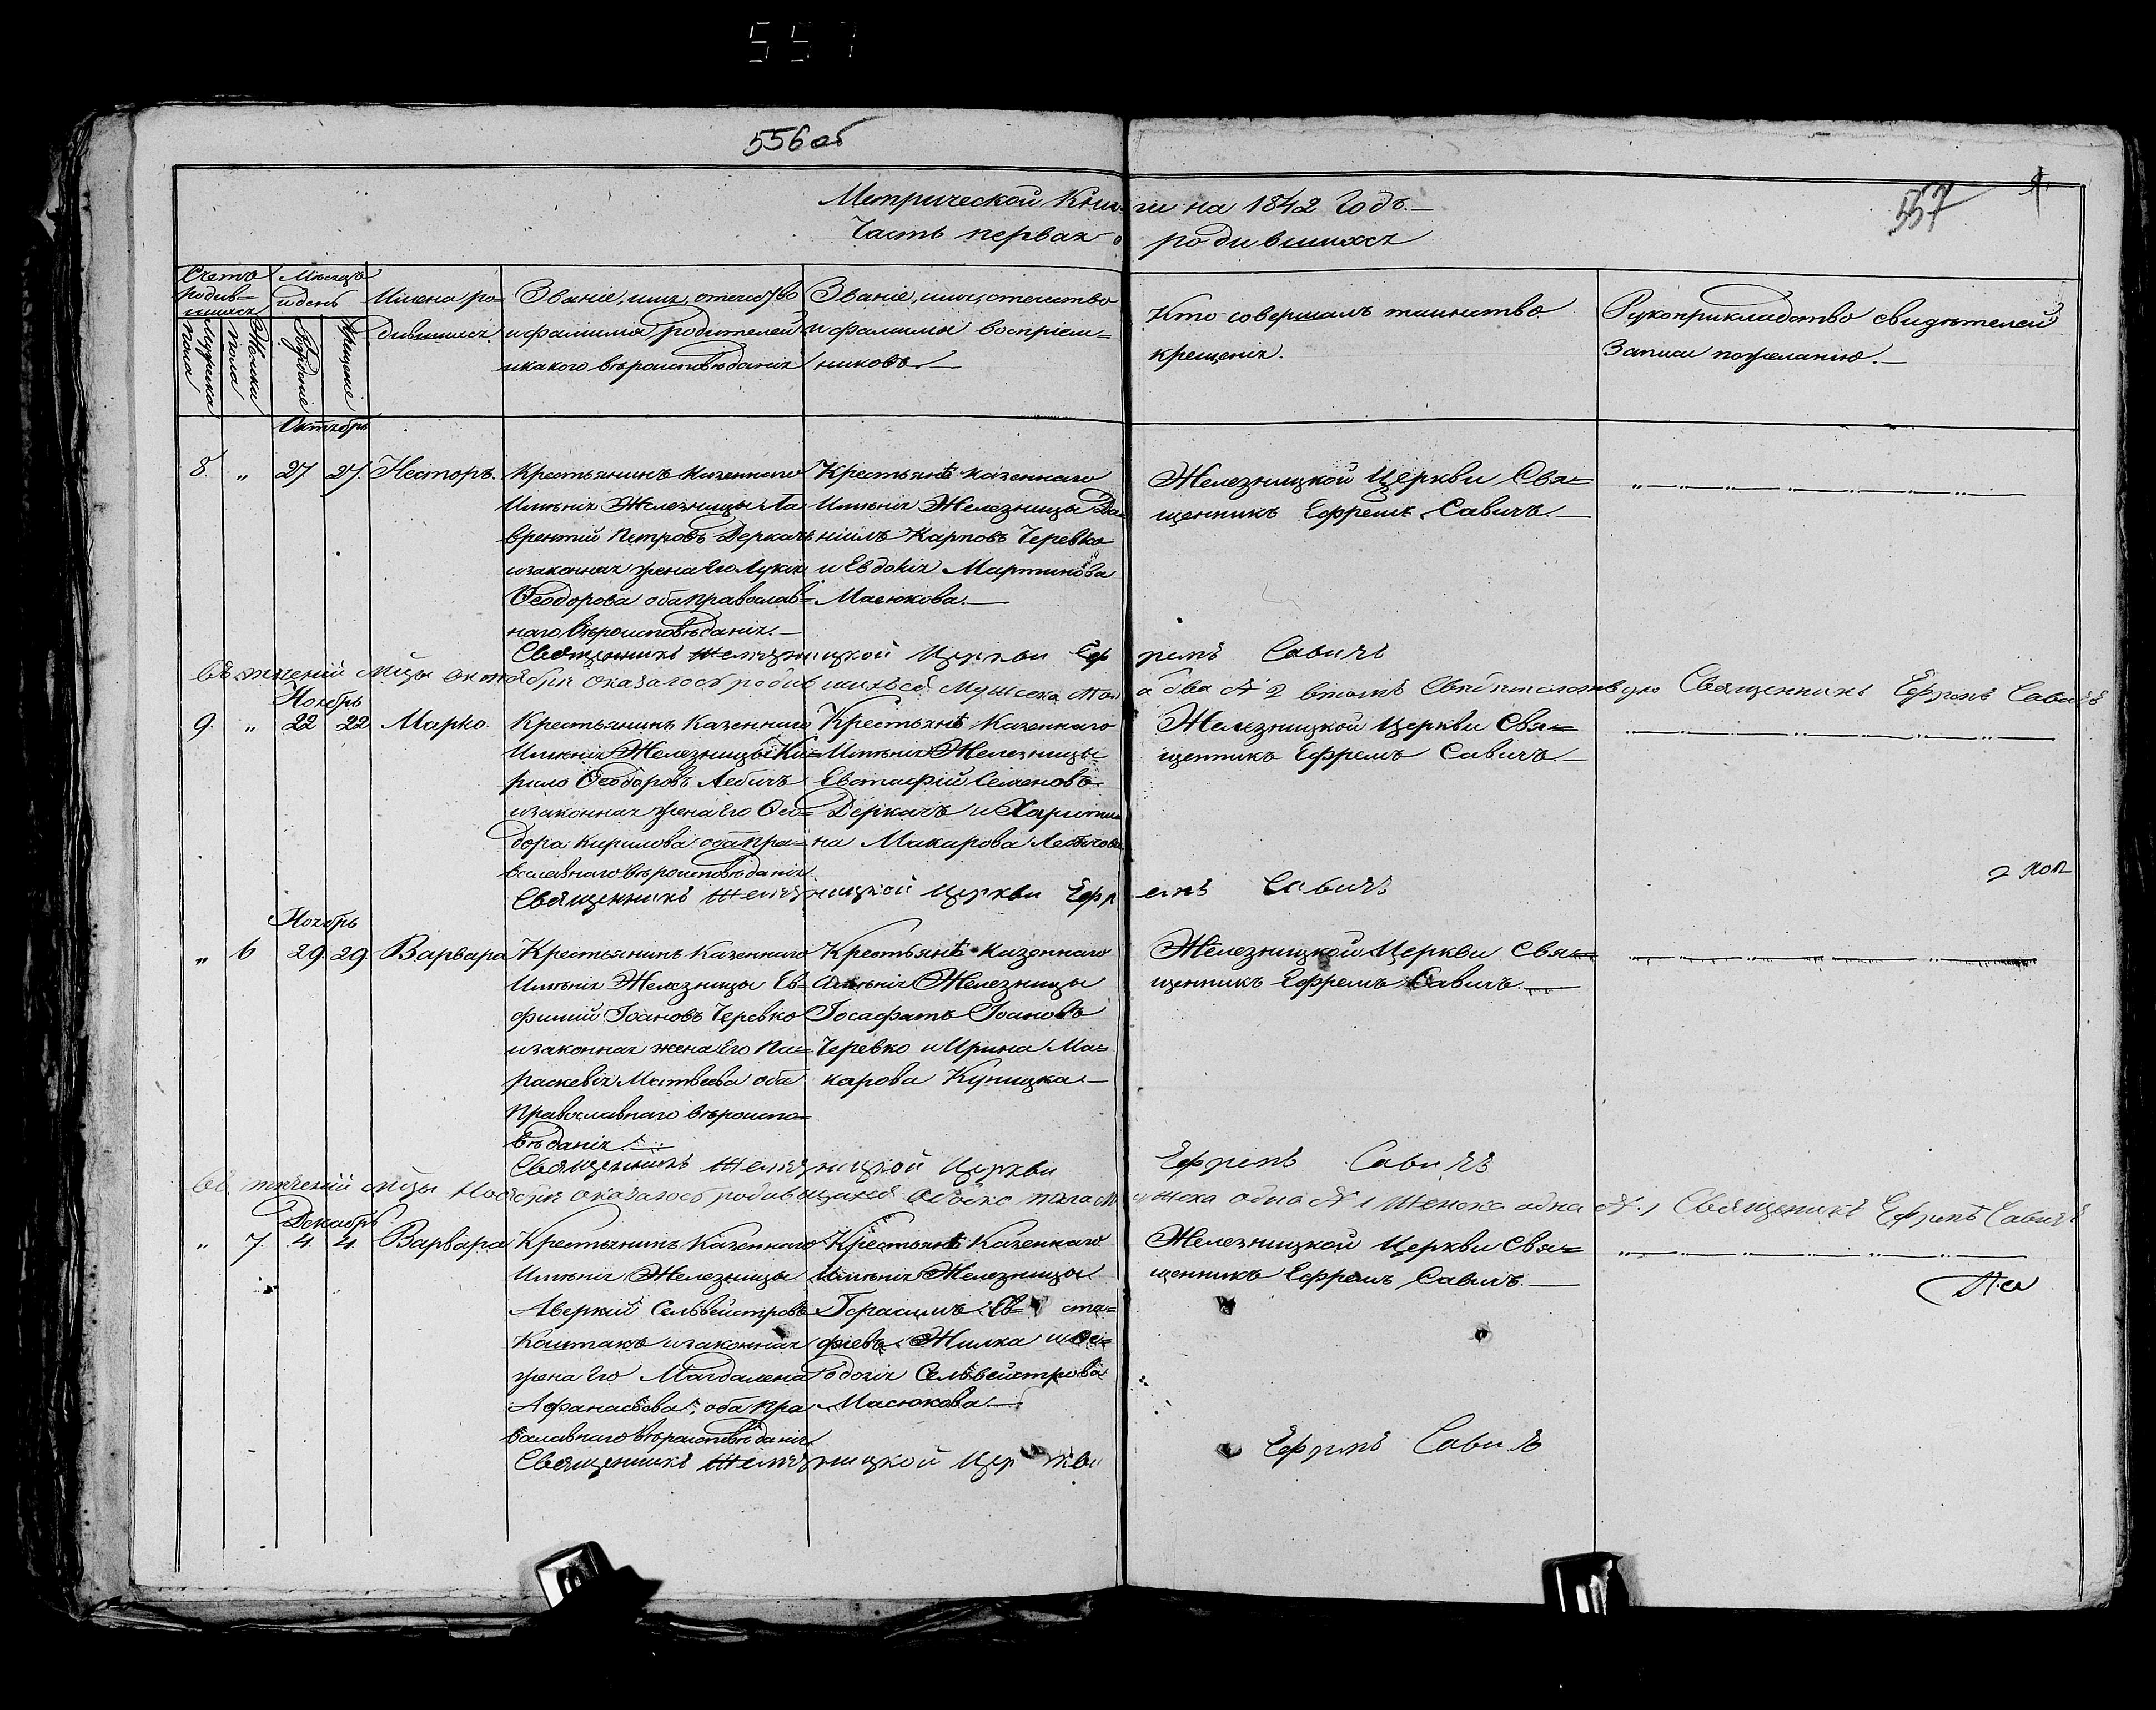 557
556 об
557
Метрической Книги на 1842 Годъ.
Часть первая о родившихся
Счетъ родив=шихся
Мужеска пола
Женска пола
Мѣсяцъ и день
Рожденіе
Крещеніе
Имена ро=
дившихся
Званіе, имя, отечество
и фамилія родителей
и какого вѣроисповѣданія
Званіе, имя, отечество
и фамилія воспріем=
никовъ.
Кто совершалъ таинство
крещенія.
Рукоприкладство свидѣтелей
записи по желанію.
Октябрь
8. „ 27 27. Несторъ.
Крестьянинъ казеннаго
Имѣнія Железницы Ла
врентій Петровъ Деркачъ
и законная жена его Лукія
Ѳеодорова оба православ=
наго Вѣроисповѣданія.
Крестьянѣ казеннаго
Имѣнія Железницы Да=
ніилъ Карповъ Черевко
и Евдокія Мартинова
Масюкова.
Железницкой Церкви Свя=
щенникъ Ефремъ Савичъ.
Священникъ Железницкой Церкви Ефремъ Савичъ
Въ теченіи мѣсца октября оказалось родившихся Мужеска пола два № 2 в томъ Свидѣтелствую Священникъ Ефремъ Савичъ
Ноябрь
9. „ 22 22 Марко.
Крестьянинъ Казеннаго
Имѣнія Железницы Ки=
рило Ѳеодоровъ Лебичъ
и законная жена его Ѳео=
дора Кирилова оба пра=
вославнаго вѣроисповѣданія
Крестьянѣ Казеннаго
Имѣнія Железницы
Евстафій Семеновъ
Деркачъ и Харити=
на Макарова Лебичова
Железницкой Церкви Свя=
щенникъ Ефремъ Савичъ.
2 коп
Священникъ Железницкой Церкви Ефремъ Савичъ
Ноябрь
„ 6 29. 29. Варвара
Крестьянинъ Казеннаго
Имѣнія Железницы Ев=
фимій Іоановъ Черевко
и законная жена Его Па=
раскевія Матвеева оба
Православнаго вѣроиспо=
вѣданія.
Крестьянѣ казеннаго
Имѣнія Железницы
Іосафатъ Іоановъ
Черевко и Ирина Ма=
карова Куницка.
Железницкой Церкви Свя=
щенникъ Ефремъ Савичъ.
Священникъ Железницкой Церкви Ефремъ Савичъ
Въ теченіи мѣсца Ноября оказалось родившихся обоего пола Мужеска одна № 1 Женска одна № 1 Священникъ Ефремъ Савичъ
Декабрь
„ 7. 4. 4. Варвара
Крестьянинъ Казеннаго
Имѣнія Железницы
Аверкій Сельвейстровъ
Коштакъ и законная
жена его Магдалена
Афанасьева, оба пра
вославнаго вѣроисповѣданія
Крестьянѣ Казеннаго
Имѣнія Железницы
Герасимъ Ев= ста=
фіевъ Жилка и Ѳе=
одосія Сельвейстрова
Масюкова.
Железницкой Церкви Свя=
щенникъ Ефремъ Савичъ.
Священникъ Железницкой Церкви Ефремъ Савичъ